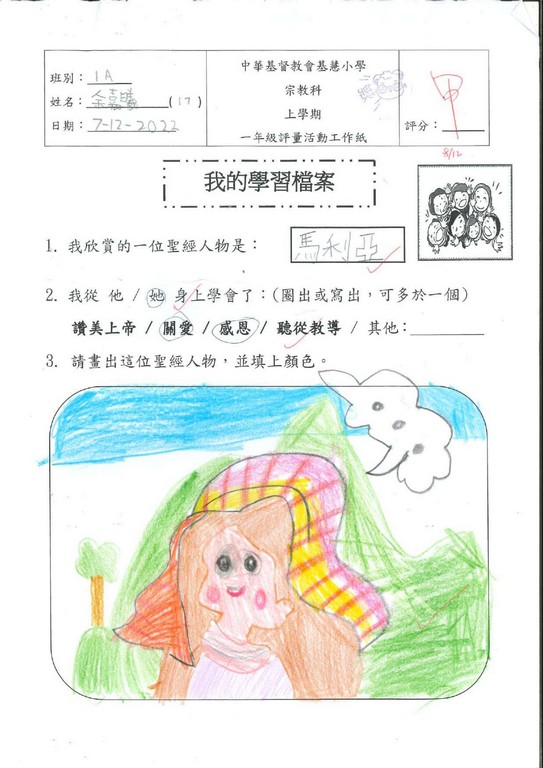 中華基督教會基慧小學
宗教科
上學期
一年級評量活動工作紙
班別：1A
姓名：余嘉曦(17)
日期：7-12-2022
評分：甲
8/12
我的學習檔案
1. 我欣賞的一位聖經人物是：馬利亞
2. 我從 他 / 她 身上學會了：(圈出或寫出，可多於一個)
讚美上帝 / 關愛 / 感恩 / 聽從教導 / 其他：
3. 請畫出這位聖經人物，並填上顏色。